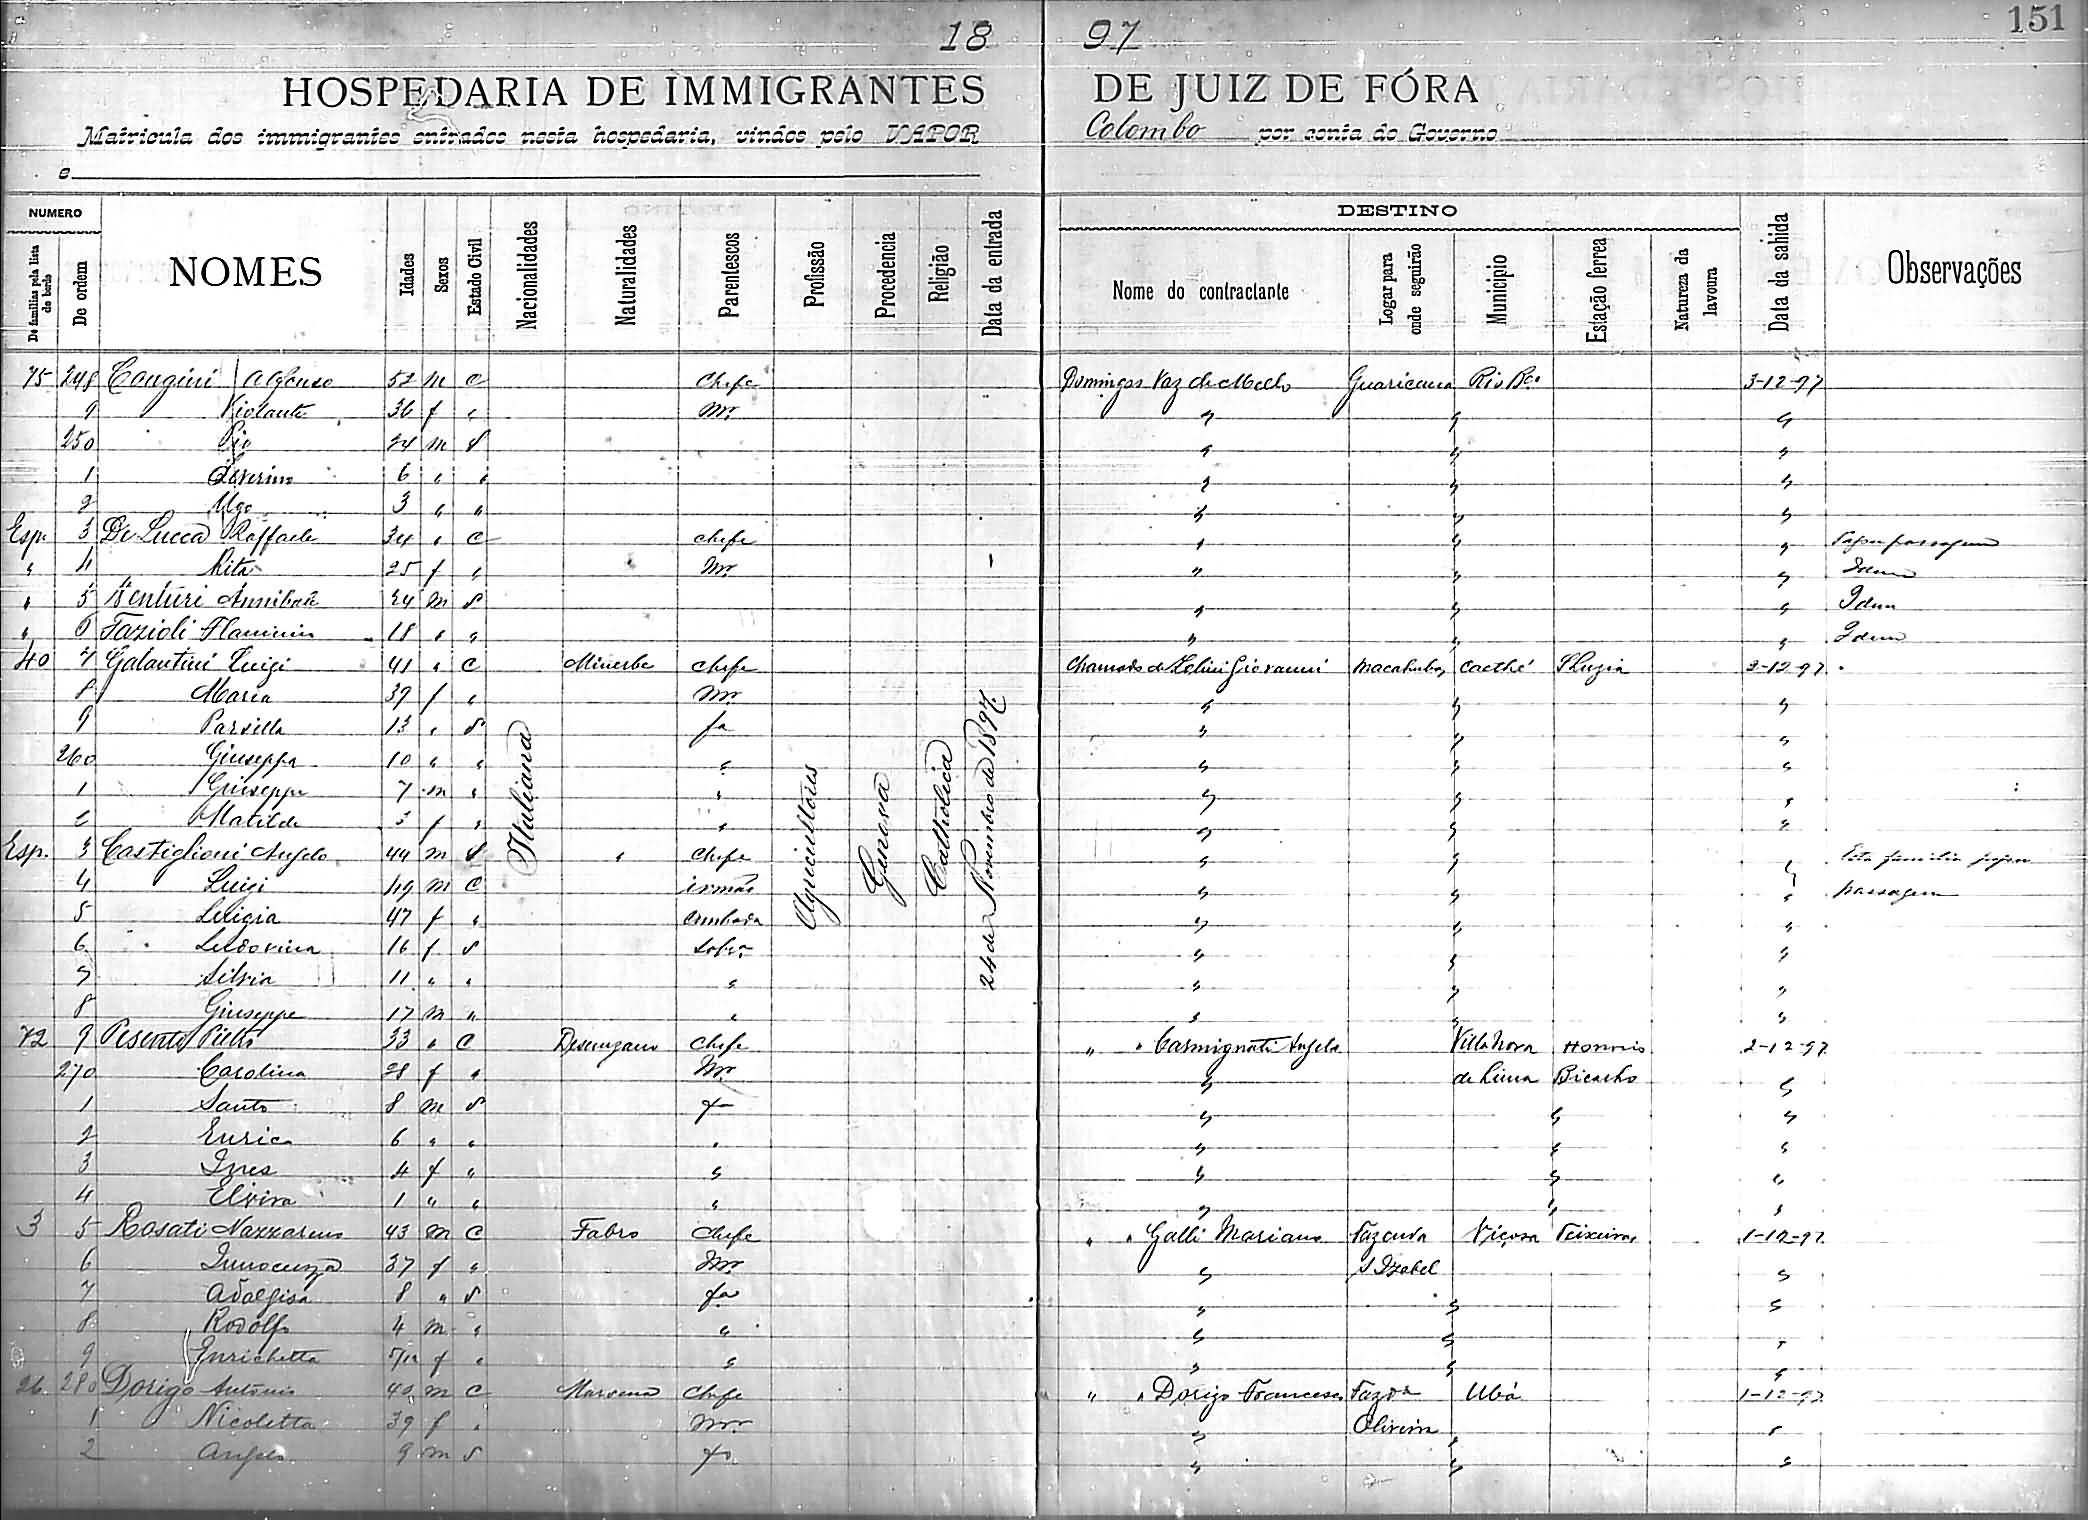 18 97
151
HOSPEDARIA DE IMMIGRANTES DE JUIZ DE FÓRA
Matricula dos immigrantes entrados nesta hospedaria, vindos pelo VAPOR Colombo por conta do Governo
e
NUMERO
De familias pela lista de bordo
De ordem
NOMES
Idades
Sexos
Estado Civil
Nacionalidades
Naturalidades
Parentescos
Profissão
Procedencia
Religião
Data da entrada
DESTINO
Nome do contractante
Logar para onde seguirão
Municipio
Estação ferrea
Natureza da lavoura
Data da sahida
Observações
Italiana
Agricultores
Genova
Catholica
24 de Novembro de 1897
75 248 Alfonso 52 m c Chefe Domingos Vaz de Mello Guaricana Rio Bco 3-12-97
9 Violante 36 f " Mr " " "
250 Pio 24 m s " " "
1 Severino 6 " " " " "
2 Ugo 3 " " " " "
Esp. 3 De Lucca Raffaele 34 " c chefe " " "
" 4 Rita 25 f " Mr " " " Idem
" 5 Venturi Annibale 24 m s " " " Idem
" 6 Fazioli Flaminio 18 " " " " " Idem
40 7 Galantini Luigi 41 " c Minerbe chefe Chamado de Giovanni Macahubas Caethé S Luzia 2-12-97
8 Maria 39 f " Mr " " "
9 13 " s fa " " "
260 Giuseppa 10 " " " " " "
1 Giuseppe 7 m " " " " "
2 Matilde 3 f " " " " "
Esp. 3 Castiglioni Angelo 44 m s " Chefe " " " Esta familia pagou
4 Luigi 49 m c irmão " " " passagem
5 Luigia 47 f " cunhada " " "
6 Ludovina 16 f s sobra " " "
7 Silvia 11 " " " " " "
8 Giuseppe 17 m " " " " "
72 9 Pesenti Pietro 33 " c Desenzano Chefe " " Carmignati Angelo Villa Nova Honorio 2-12-97
270 Carolina 28 f " Mr " de Lima Bicalho "
1 Santo 8 m s fo " " "
2 Enrico 6 " " " " " "
3 Ines 4 f " " " " "
4 Elvira 1 " " " " " "
3 5 Rosati Nazzareno 43 m c Fabro Chefe " " Galli Mariano Fazenda Viçosa Teixeiras 1-12-97
6 Innocenza 37 f " Mr " S Izabel "
7 Adalgisa 8 " s fa " " "
8 Rodolfo 4 m " " " " "
9 Enrichetta 5/12 f " " " " "
26 280 Dorigo Antonio 40 m c Chefe " " Dorigo Francesco Fazda Ubá 1-12-97
1 Nicoletta 39 f " Mr " Oliveira " "
2 Angelo 9 m s fo " " "